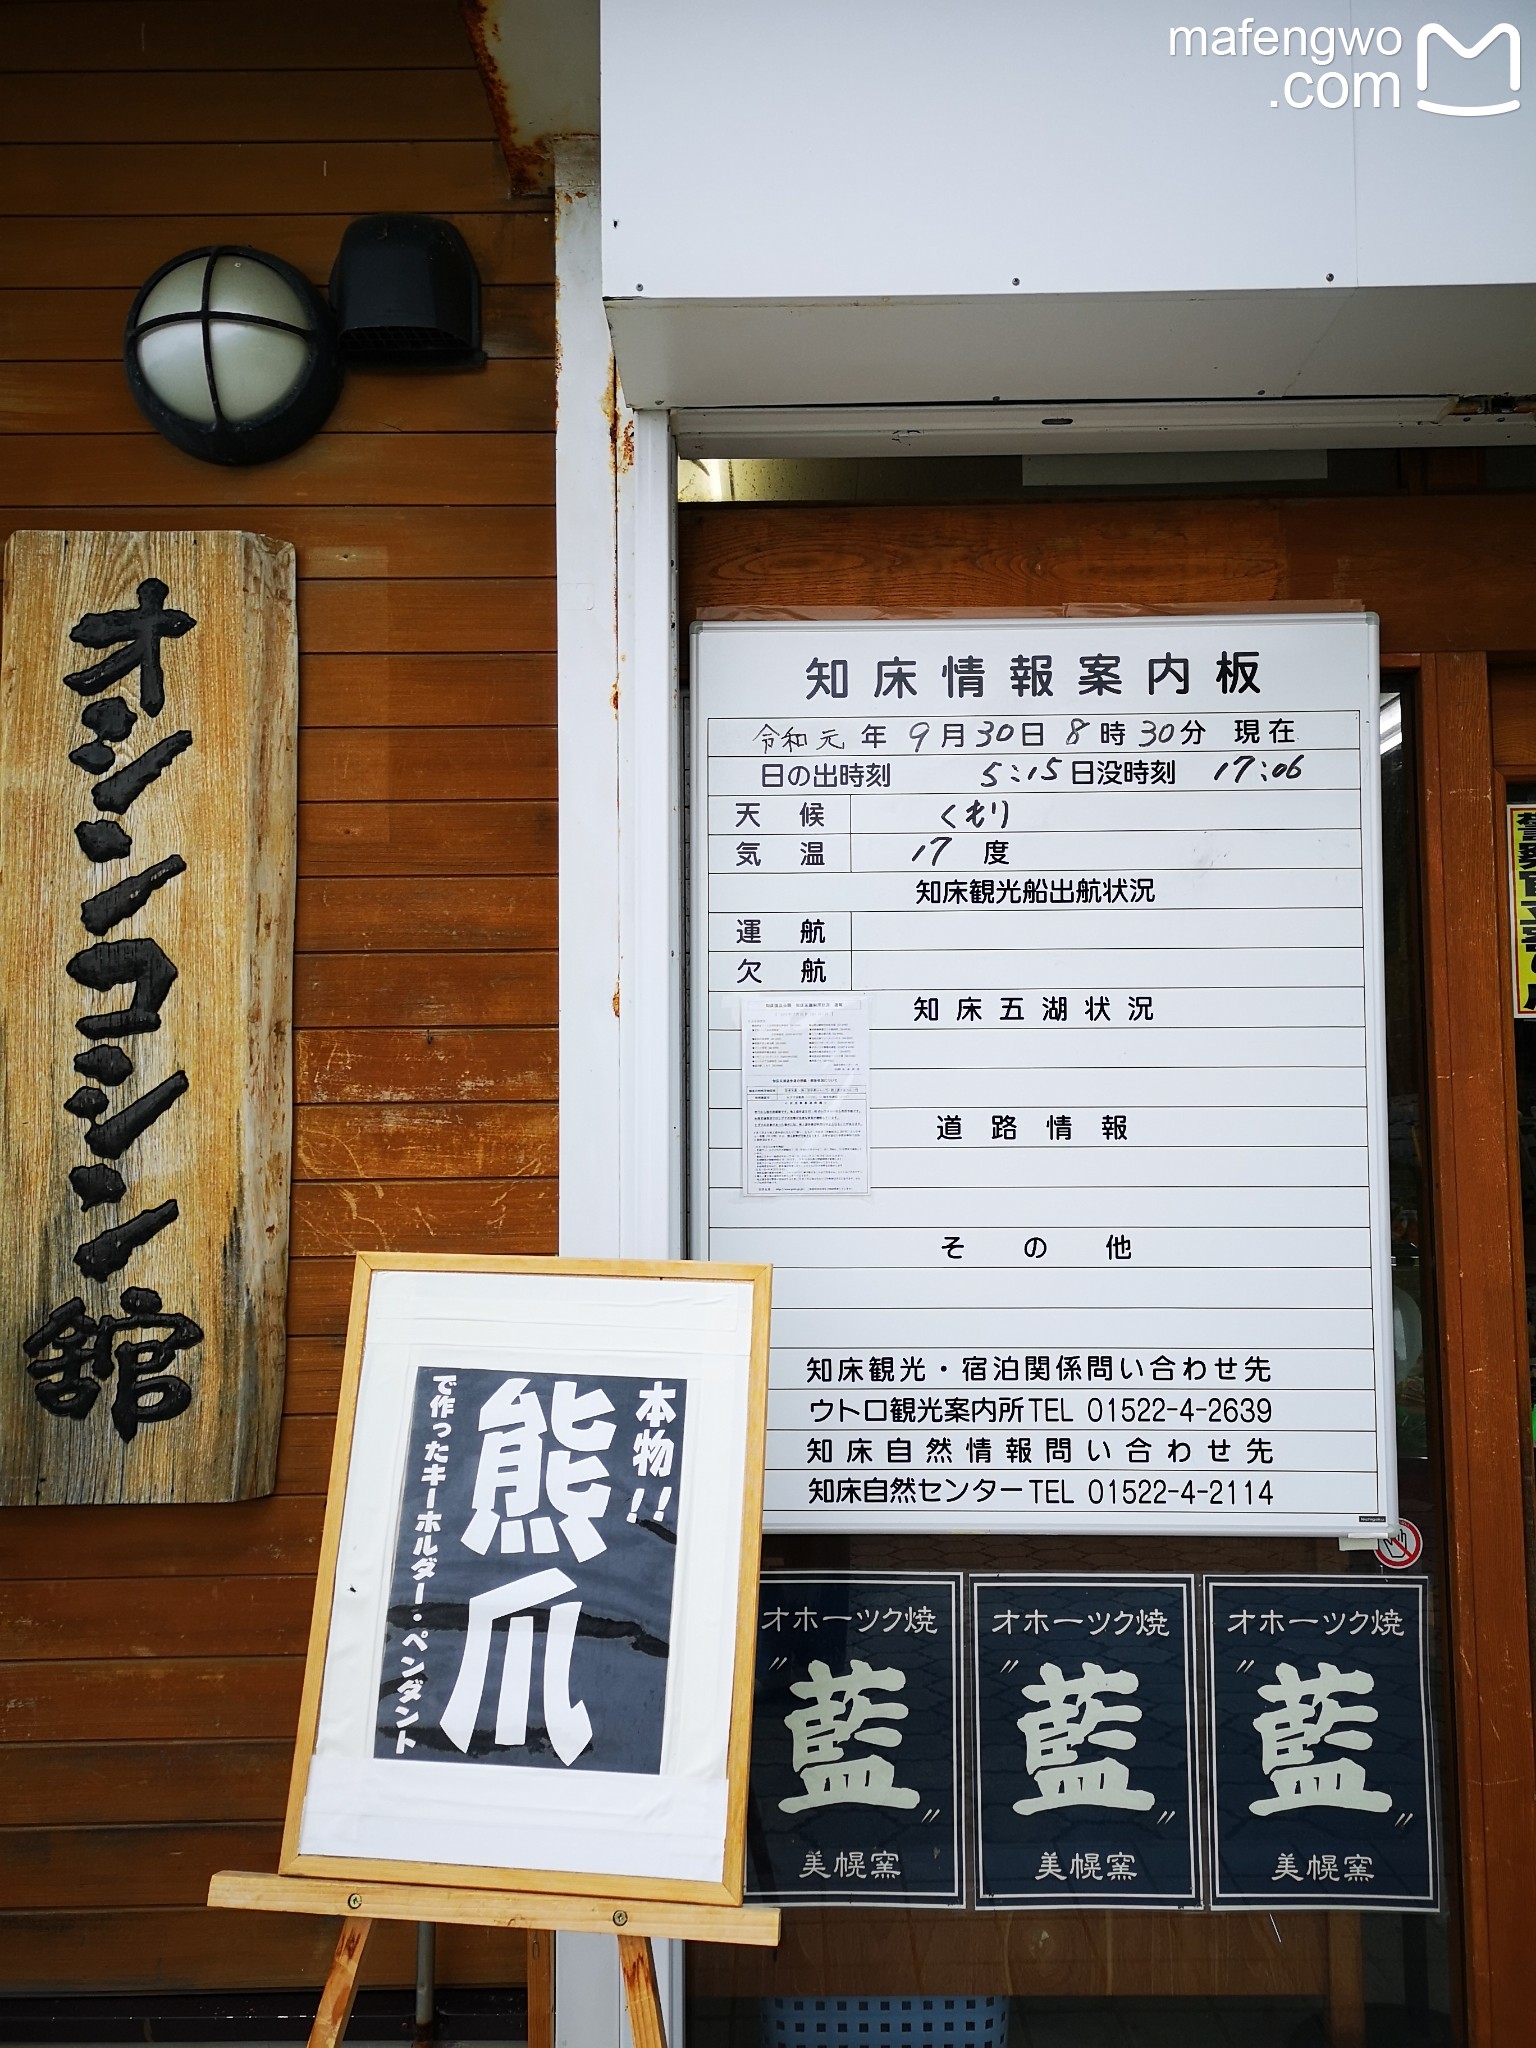 mafengwo
.com
オシンコシン館
知床情報案内板
令和元年 9月30日 8時30分 現在
日の出時刻 5:15 日没時刻 17:06
天候 くもり
気温 17 度
知床観光船出航状況
運航
欠航
知床五湖状況
道路情報
その他
知床観光・宿泊関係問い合わせ先
ウトロ観光案内所TEL 01522-4-2639
知床自然情報問い合わせ先
知床自然センターTEL 01522-4-2114
本物!!
熊爪
で作ったキーホルダー・ペンダント
オホーツク焼
"藍"
美幌窯
オホーツク焼
"藍"
美幌窯
オホーツク焼
"藍"
美幌窯